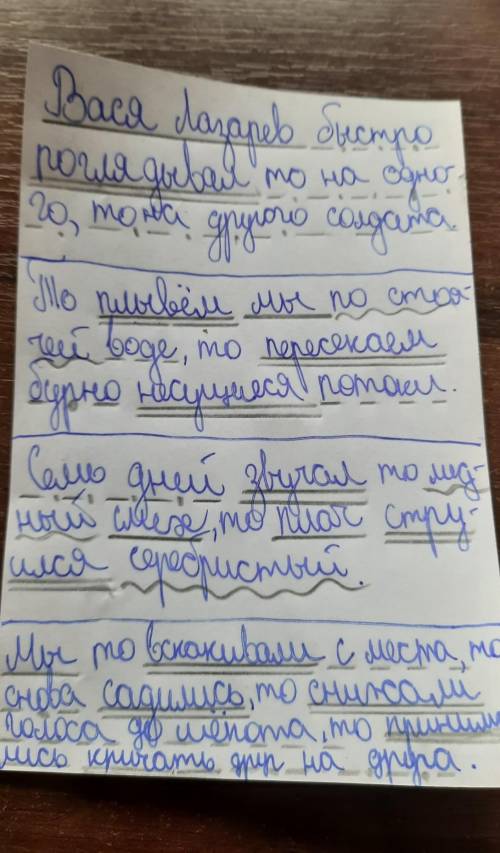 Вася Лазарев быстро
поглядывал то на одно-
го, то на другого солдата.
То плывём мы по стоя-
чей воде, то пересекаем
бурно несущиеся потоки.
Семь дней звучал то мед-
ный смех, то плач стру-
ился серебристый.
Мы то вскакивали с места, то
снова садились, то снижали
голоса до шёпота, то принима-
лись кричать друг на друга.